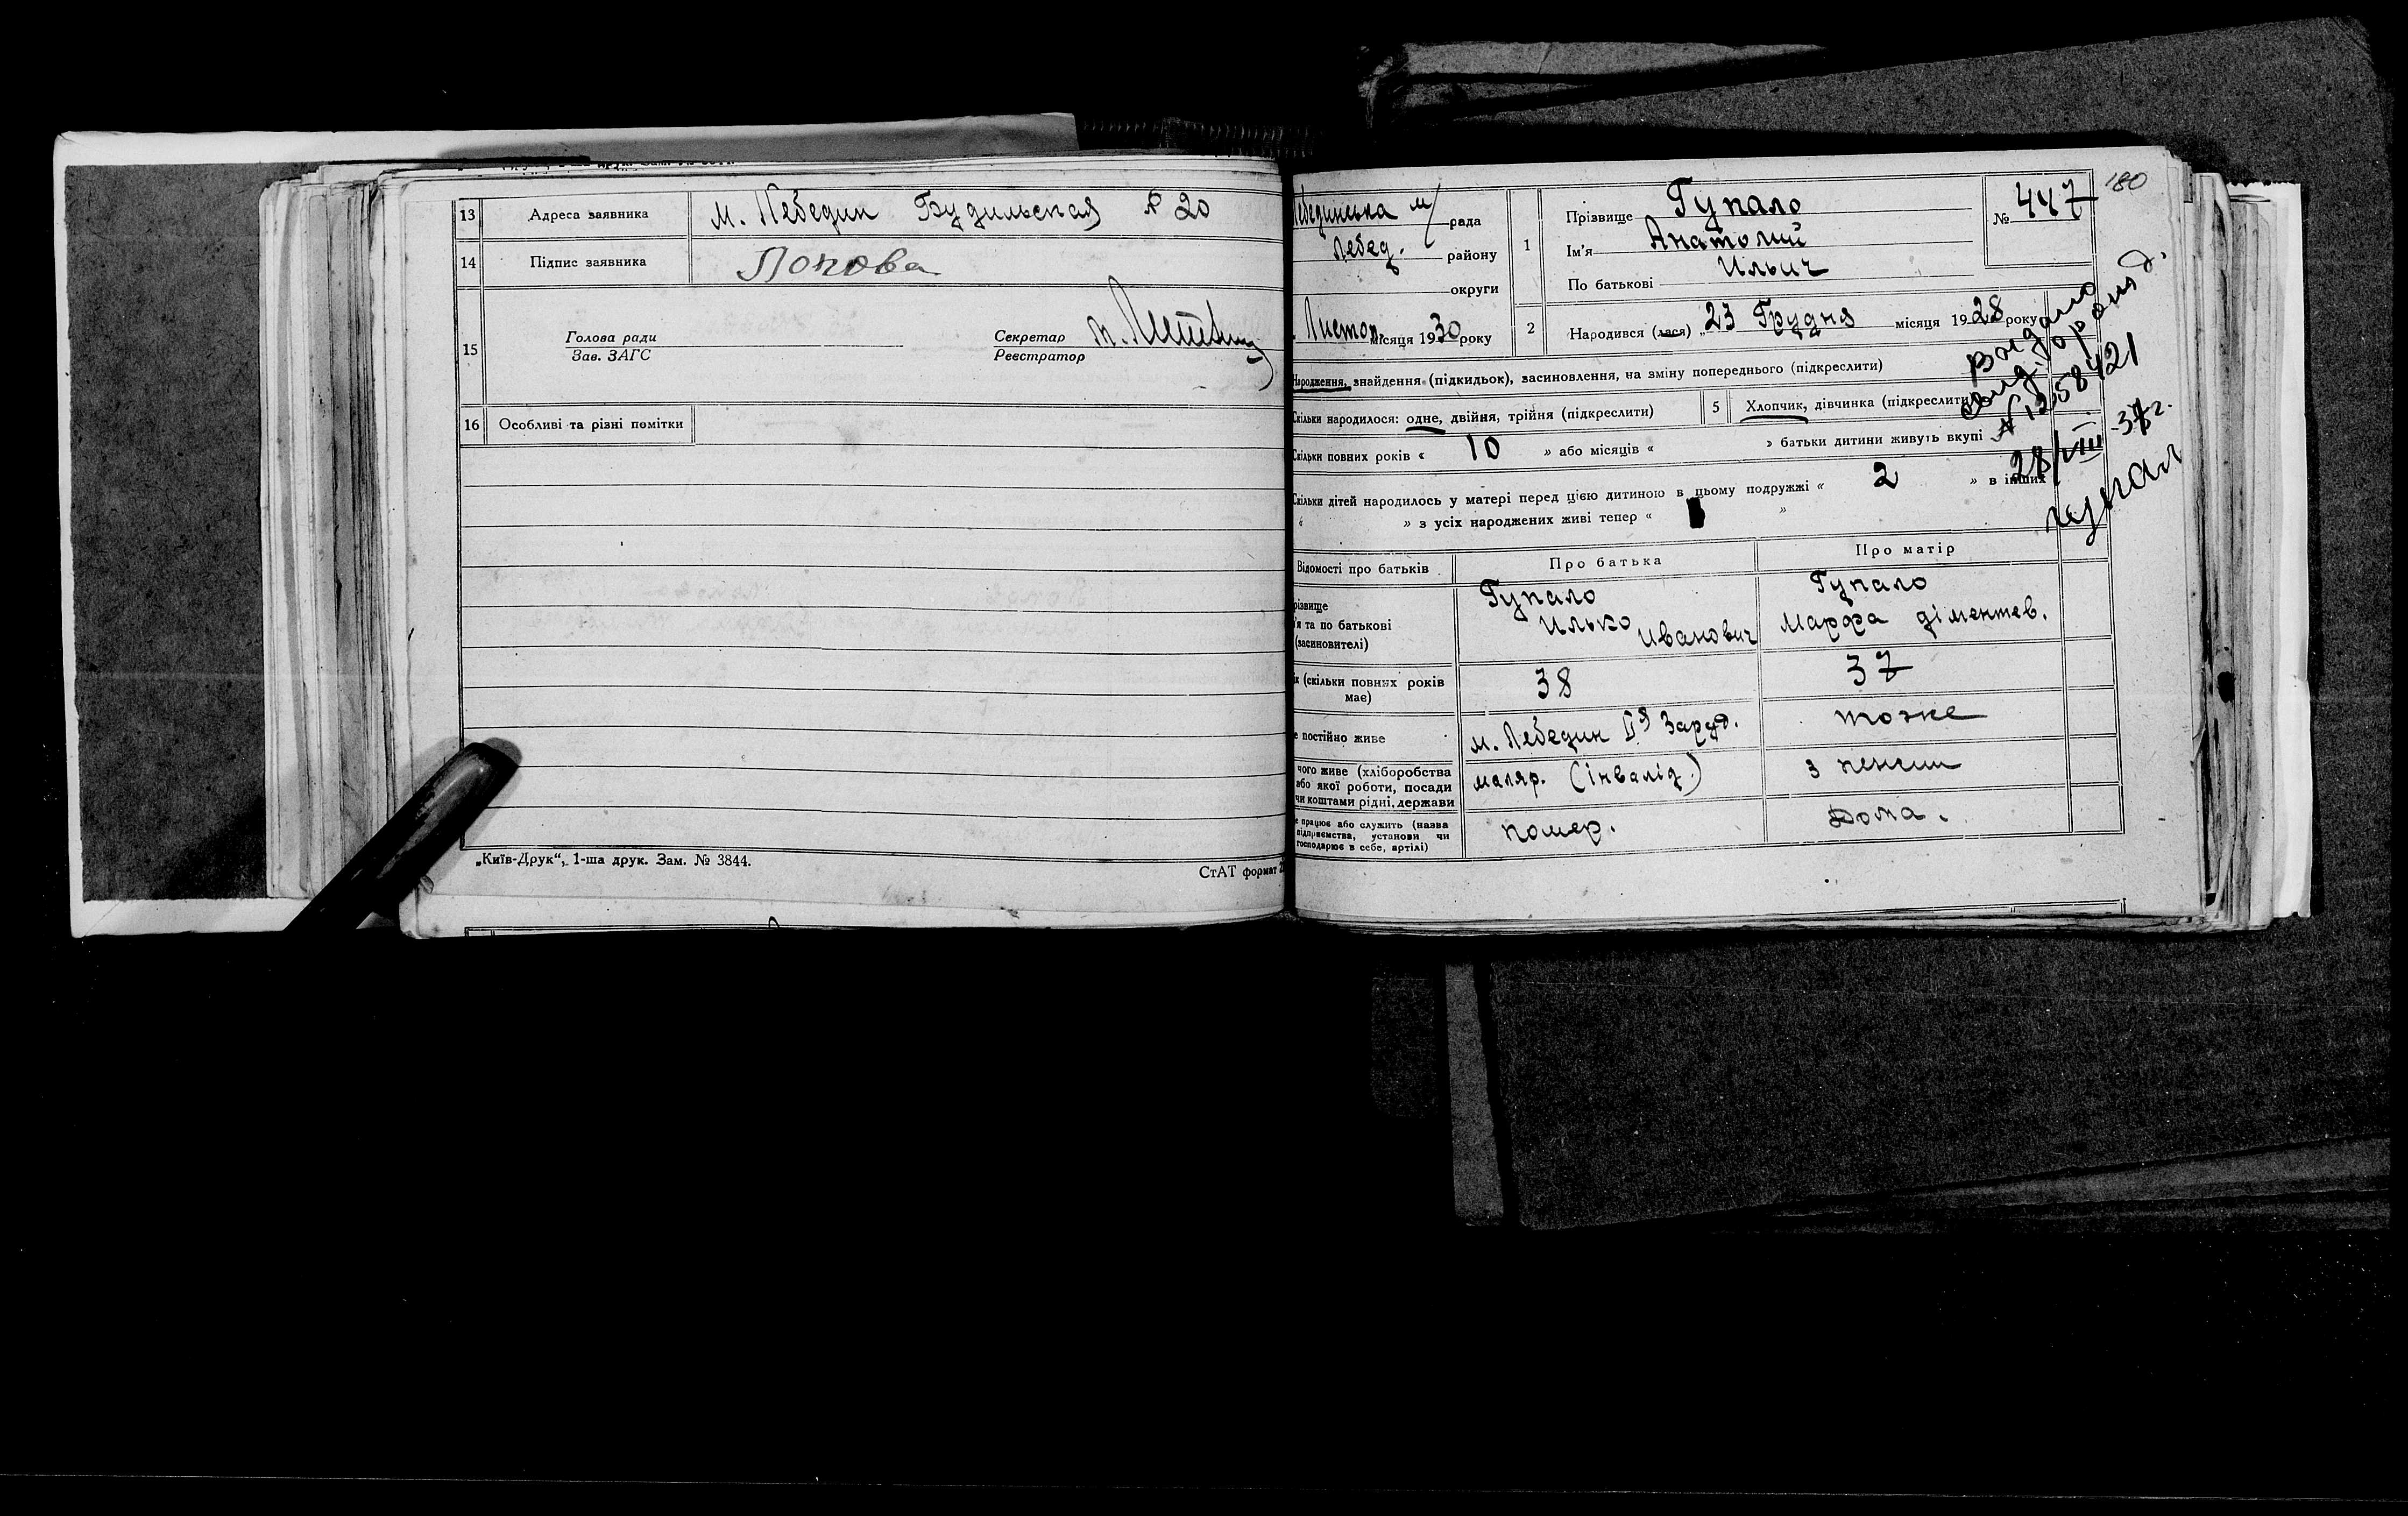 13 Адреса заявника м. Лебедин Будильская № 20
14 Підпис заявника Попова
15 Голова ради
Зав. ЗАГС
Секретар
Реєстратор
16 Особливі та різні помітки
„Київ-Друк“, 1-ша друк. Зам. № 3844.
СтАТ формат
180
Лебединська м/ рада
Лебед. району
округи
Листоп. місяця 1930 року
1 Прізвище Гупало
Ім'я Анатолий
По батькові Ильич
№ 447
2 Народився (лася) „23 Грудня місяця 1928 року
Народження, знайдення (підкидьок), засиновлення, на зміну попереднього (підкреслити)
Скільки народилося: одне, двійня, трійня (підкреслити)
5 Хлопчик, дівчинка (підкреслити
Скільки повних років « 10 » або місяців « » батьки дитини живуть вкупі
Скільки дітей народилось у матері перед цією дитиною в цьому подружжі « 2 » в інших
« » з усіх народжених живі тепер « »
Видано
№ 1358421
28/VIII -37г.
Відомості про батьків Про батька Про матір
різвище
'я та по батькові
(засиновителі)
Гупало
Илько Иванович
Гупало
Марфа діментев.
к (скільки повних років
має)
38
37
е постійно живе
м. Лебедин ІІя Заруд.
тоже
чого живе (хліборобства
або якої роботи, посади
чи коштами рідні, держави
маляр. (інвалід.)
з пенсии
е працює або служить (назва
підприємства, установи чи
господарює в себе, артілі)
помер.
дома.